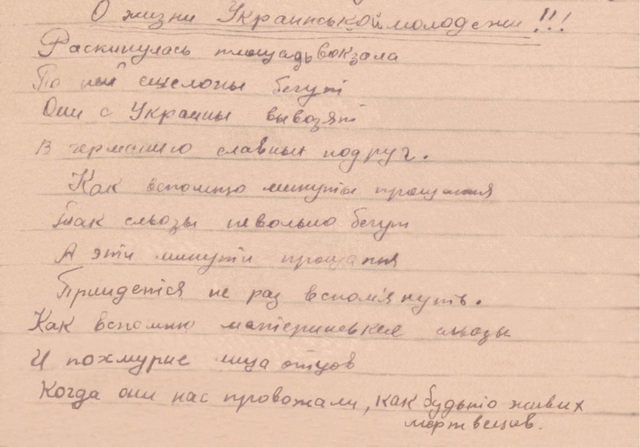 О жизни Украинськой молодежи!!!
Раскинулась площадь вокзала
По ный ешелоны бегут
Они с Украины вывозят
В германию славных подруг.
Как вспомню минуты прощання
Так сльозы невольно бегут
А эти минути прощання
Приидется не раз вспом'януть.
Как вспомню материнськие сльозы
И похмурие лица отцов
Когда они нас провожали, как будьто живих
мертвецов.